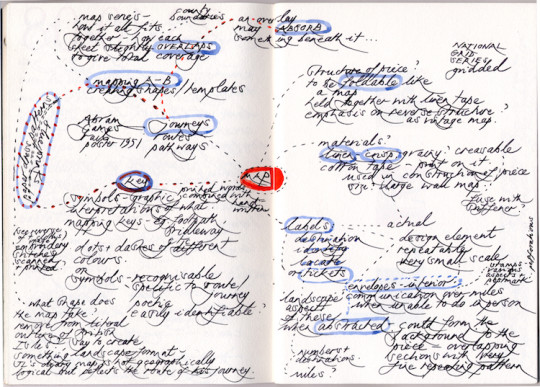 map series -
how it all fits
together - how each
sheet slightly OVERLAPS
to give total coverage
county
boundaries
an overlay
may ABSORB
something beneath it...
mapping A-B
creating shapes/templates
Abram
Games
poster 1951
Journeys
routes
pathways
key
symbols - graphic
interpretations of what
mapping keys eg footpath
bridleway
dots + dashes of different
colours
or
symbols - recognisable
specific to route/
journey
poetic
easily identifiable?
printed words
combined with
hand
written
what shape does
the map take?
remove from literal
outline of British
Isles - way to create
something landscape format -
is map not geographically
logical but reflects the route of the journey.
MAP
NATIONAL
GRID
SERIES
gridded
structure of piece?
to be foldable like
a map
held together with linen tape
emphasis on reverse structure?
as vintage map.
materials?
linen crisp creasable
cotton tape - print on it
used in construction of piece
size? large wall map?
fuse with
stiffener
labels?
destination
identity
locate
or tickets
actual
design element
repeatable
very small scale
perforations
envelopes interior
communication over miles
when unable to do in person
landscape
aspects
of these
when abstracted
could form the
background to the
piece - overlapping
sections with very
fine repeating pattern
numbers +
destinations.
miles?